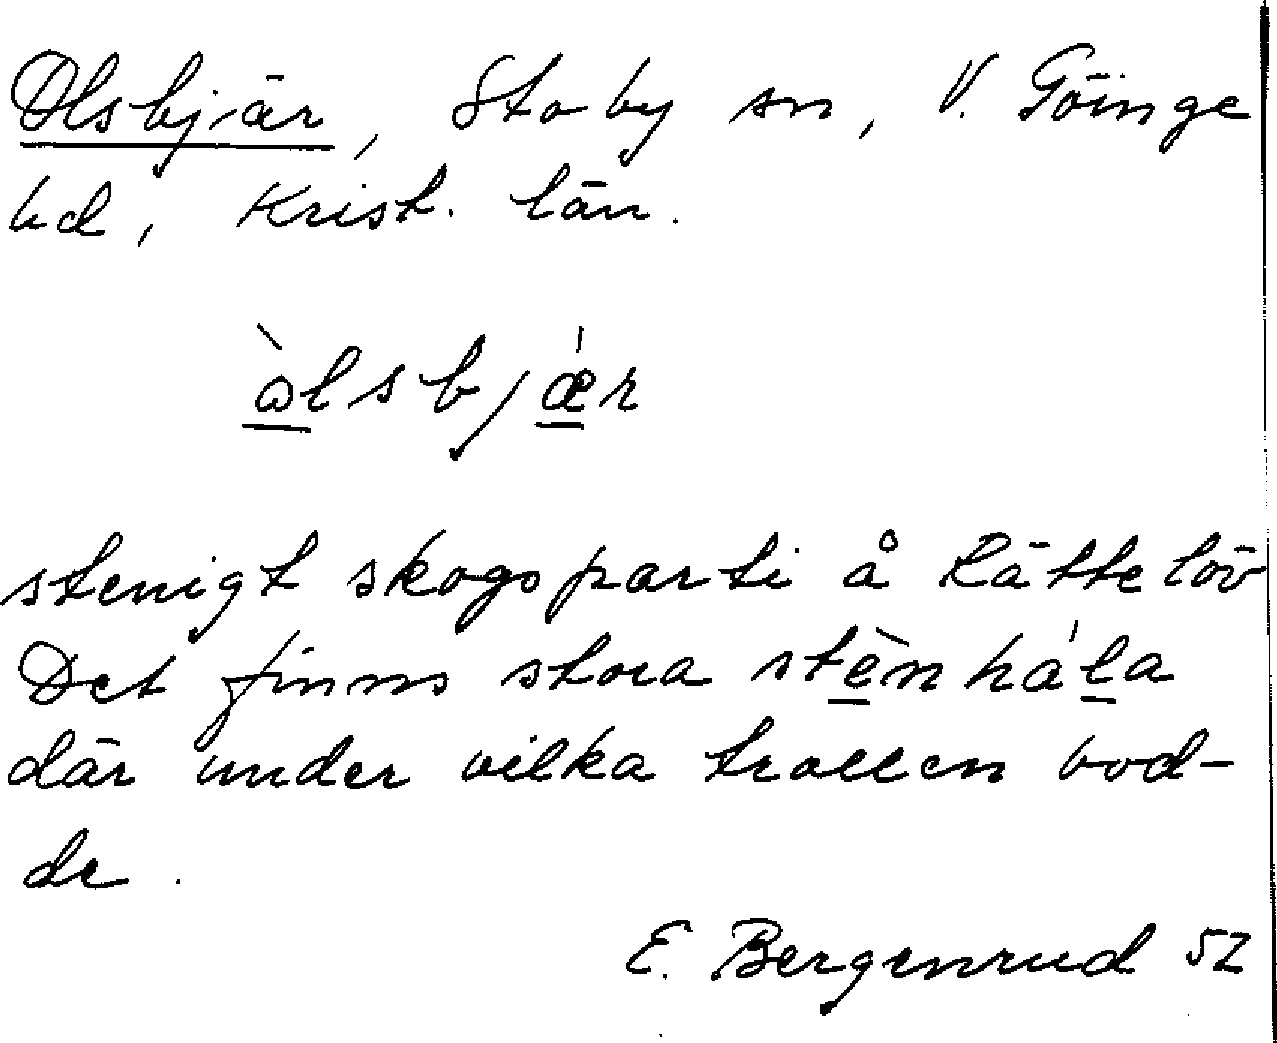 Olsbjär, Stoby sn, V. Göinge
hd, Krist. län.
ò̱lsbjǽ̱r
stenigt skogsparti å Rättelöv
Det finns stora stè̱nhá̱la
där under vilka trollen bod-
de.
E. Bergenrud 52